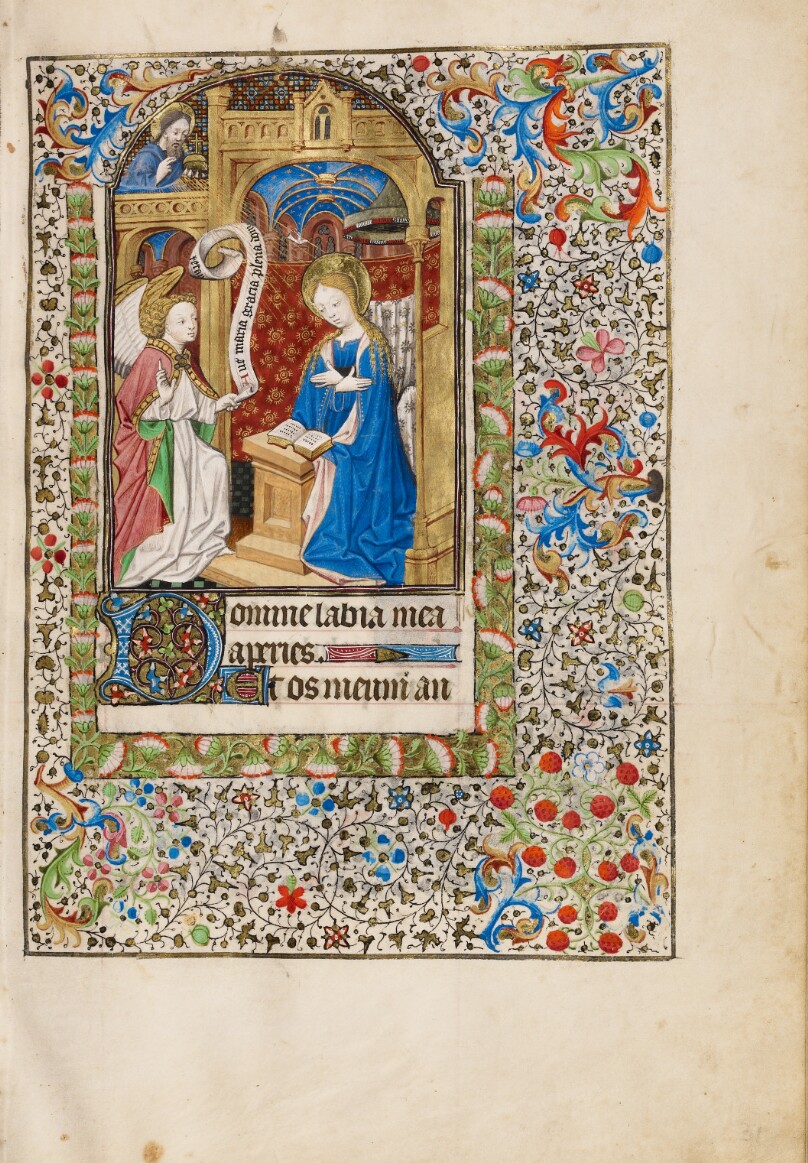 Aue maria gracia plena
Domine labia mea
aperies.
Et os meum an
31